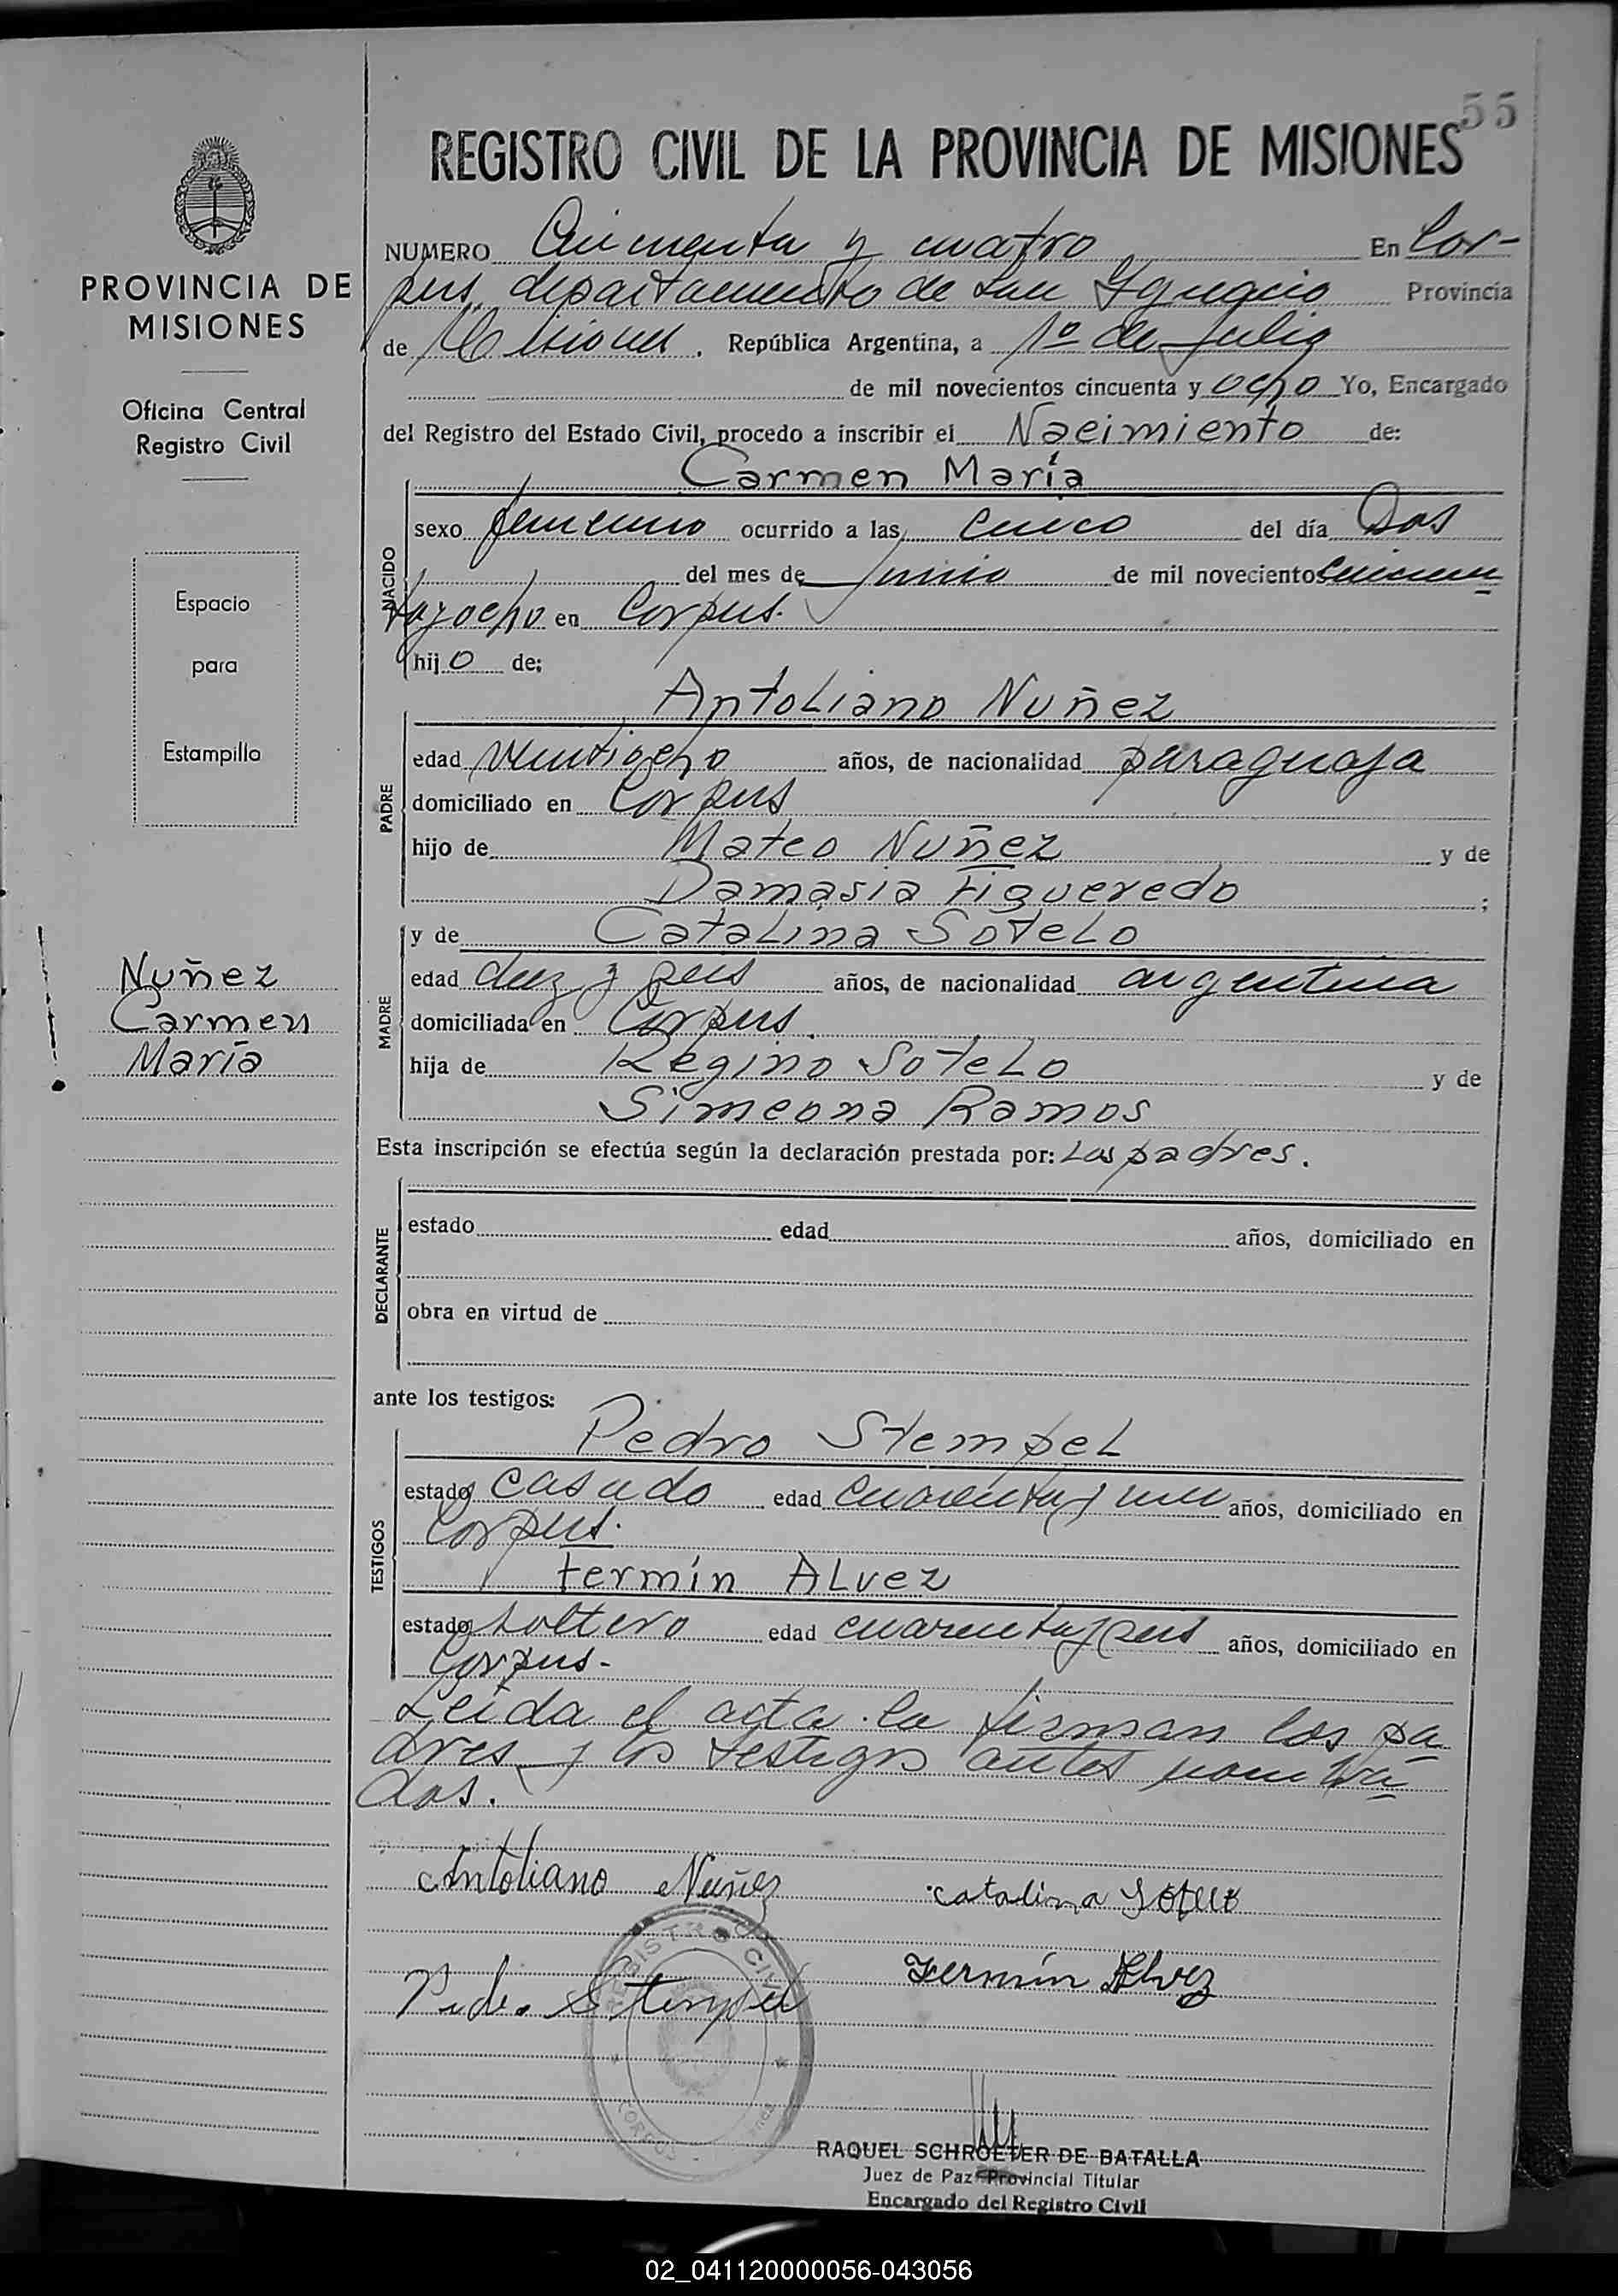 55
REGISTRO CIVIL DE LA PROVINCIA DE MISIONES
PROVINCIA DE
MISIONES
Oficina Central
Registro Civil
Espacio
para
Estampillo
Nuñez
Carmen
María
NUMERO Cincuenta y cuatro En Cor-
pus, departamento de San Ygnacio Provincia
de Misiones. República Argentina, a 1º de Julio
de mil novecientos cincuenta y ocho Yo, Encargado
del Registro del Estado Civil, procedo a inscribir el Nacimiento de:
Carmen María
NACIDO
sexo femenino ocurrido a las cinco del día Dos
del mes de junio de mil novecientos cincuen
tayocho en Corpus.
hijo de;
Antoliano Nuñez
PADRE
edad veintiocho años, de nacionalidad paraguaya
domiciliado en Corpus
hijo de Mateo Nuñez y de
Damasia Figueredo ;
y de Catalina Sotelo
MADRE
edad diez y seis años, de nacionalidad argentina
domiciliada en Corpus.
hija de Regino Sotelo y de
Simeona Ramos
Esta inscripción se efectúa según la declaración prestada por: Los padres.
DECLARANTE
estado edad años, domiciliado en
obra en virtud de
ante los testigos:
Pedro Stempel
TESTIGOS
estado casado edad cuarentay un años, domiciliado en
Corpus.
Fermín Alvez
estado soltero edad cuarentayseis años, domiciliado en
Corpus.-
Leída el acta la firman los pa
dres y los testigos antes nombra
dos.
Antoliano Nuñez catalina Sotelo
Pedro Stempel Fermín Alvez
REGISTRO CIVIL
CORPUS
RAQUEL SCHROETER DE BATALLA
Juez de Paz Provincial Titular
Encargado del Registro Civil
02_041120000056-043056